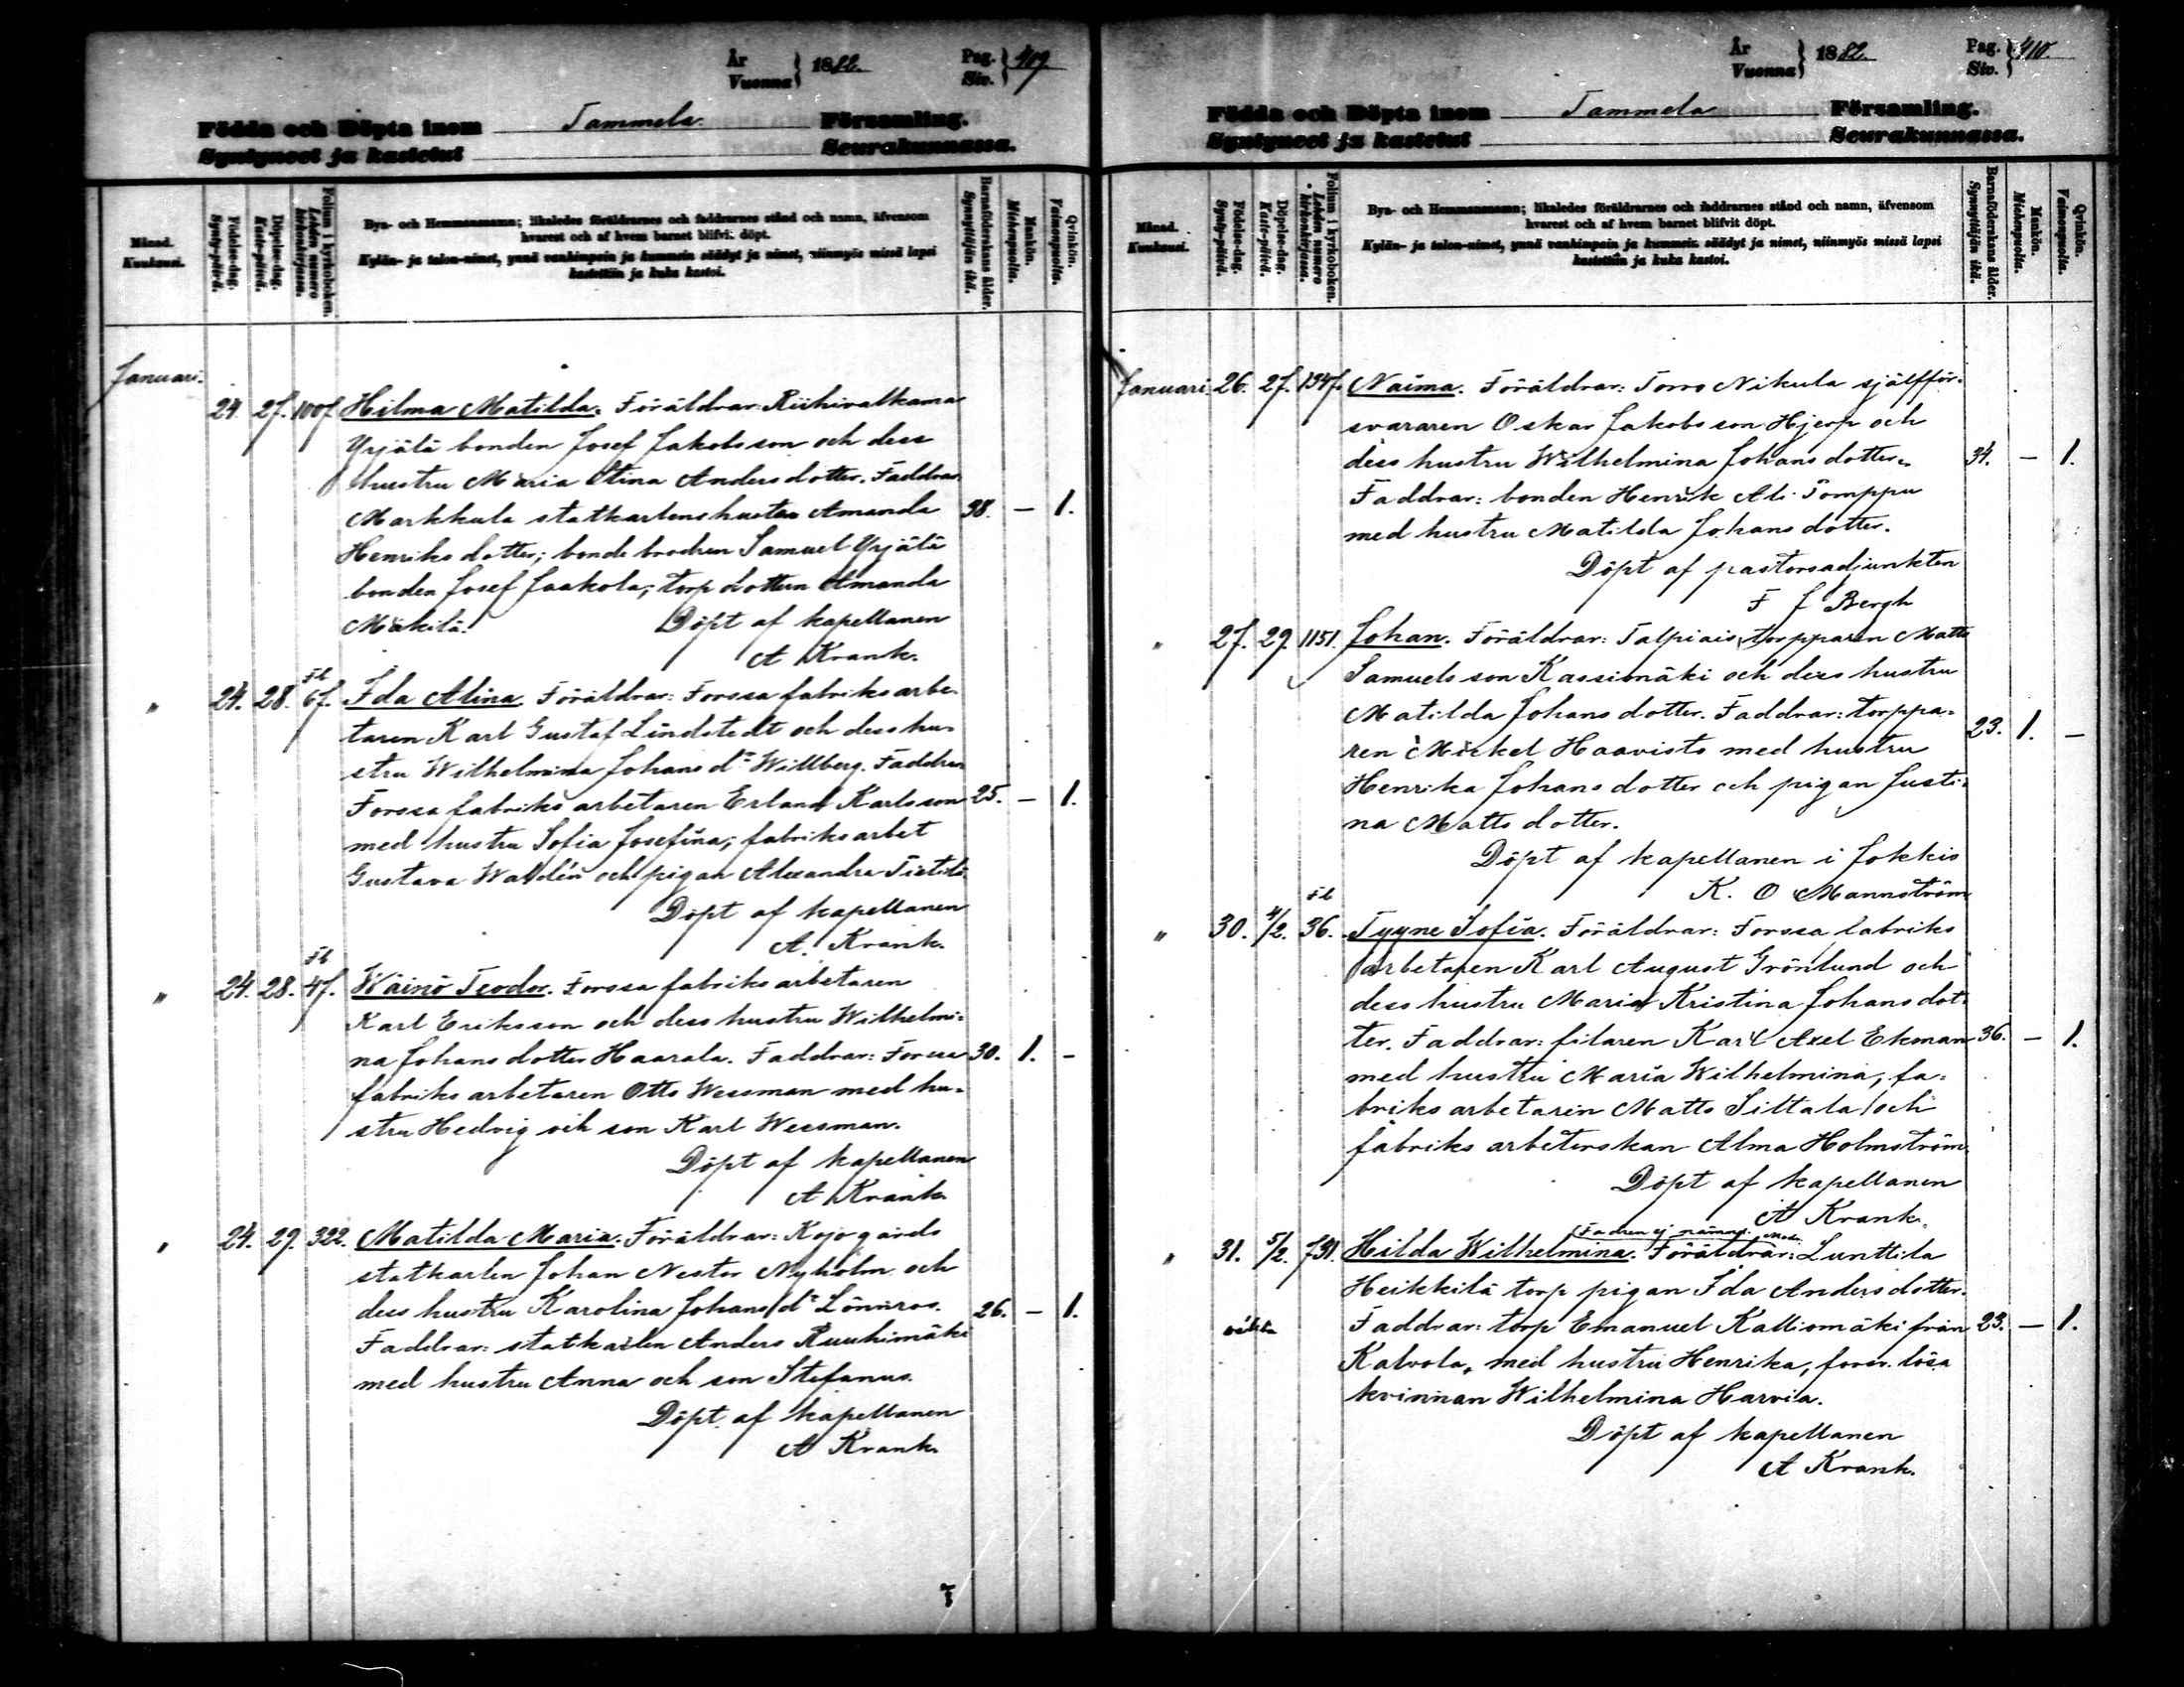 År
Vuonna } 1882. Pag.
Siv. } 409
Födda och Döpta inom Tammela Församling.
Syntyneet ja kastetut Seurakunnassa.
Månad.
Kuukausi.
Födelse-dag.
Synty-päivä.
Döpelse-dag.
Kaste-päivä.
Folium i kyrkoboken.
Lehden numero
kirkonkirjassa.
Bya- och Hemmansnamn; likaledes föräldrarnes och faddrarnes stånd och namn, äfvensom
hvarest och af hvem barnet blifvit döpt.
Kylän- ja talon-nimet, ynnä vanhimpain ja kummein säädyt ja nimet, niinmyös missä lapsi
kastettiin ja kuka kastoi.
Barnaföderskans ålder.
Synnyttäjän ikä.
Mankön.
Miehenpuolta.
Qvinkön.
Vaimonpuolta.
Januari.
24. 27. 1007. Hilma Matilda. Föräldrar: Riihivalkama
Yrjälä bonden Josef Jakobsson och dess
hustru Maria Stina Andersdotter. Faddrar
Markkula statkarlens hustru Amanda 38. — 1.
Henriksdotter; bonde brodren Samuel Yrjälä
bonden Josef Jaakola; torp dottern Amanda
Mäkilä. Döpt af kapellanen
A Krank.
Fb
" 24. 28. 67. Ida Alina Föräldrar: Forssa fabriks arbe-
taren Karl Gustaf Lindstedt och dess hu-
stru Wilhelmina Johans dr Willberg. Faddrar
Forssa fabriks arbetaren Erland Karlsson 25. — 1.
med hustru Sofia Josefina; fabriks arbet
Gustava Waldén och pigan Alexandra
Döpt af kapellanen
A. Krank.
Fb
" 24. 28. 47. Wäinö Teodor. Forssa fabriks arbetaren
Karl Eriksson och dess hustru Wilhelmi-
na Johansdotter Haarala. Faddrar: Forssa 30. 1. -
fabriks arbetaren Otto Wessman med hu-
stru Hedvig och son Karl Wessman.
Döpt af kapellanen
A Krank
" 24. 29. 322. Matilda Maria. Föräldrar: Kojo gårds
statkarlen Johan Nestor Nyholm och
dess hustru Karolina Johans dr Lönnros. 26. — 1.
Faddrar: statkarlen Anders Ruuhimäki
med hustru Anna och son Stefanus.
Döpt af kapellanen
A Krank
År
Vuonna } 1882. Pag.
Siv. } 410.
Födda och Döpta inom Tammela Församling.
Syntyneet ja kastetut Seurakunnassa.
Månad.
Kuukausi.
Födelse-dag.
Synty-päivä.
Döpelse-dag.
Kaste-päivä.
Folium i kyrkoboken.
Lehden numero
kirkonkirjassa.
Bya- och Hemmansnamn; likaledes föräldrarnes och faddrarnes stånd och namn, äfvensom
hvarest och af hvem barnet blifvit döpt.
Kylän- ja talon-nimet, ynnä vanhimpain ja kummein säädyt ja nimet, niinmyös missä lapsi
kastettiin ja kuka kastoi.
Barnaföderskans ålder.
Synnyttäjän ikä.
Mankön.
Miehenpuolta.
Qvinkön.
Vaimonpuolta.
Januari 26. 27. 1347. Naima. Föräldrar: Torro Nikula själfför-
svararen Oskar Jakobsson Hjerp och
dess hustru Wilhelmina Johansdotter. 34. — 1.
Faddrar: bonden Henrik Ali Tomppu
med hustru Matilda Johansdotter.
Döpt af pastorsadjunkten
F J Bergh
" 27. 29. 1151. Johan. Föräldrar: Talpiais torpparen Matts
Samuelsson Kassimäki och dess hustru
Matilda Johansdotter. Faddrar: torppa- 23. 1. —
ren Mickel Haavisto med hustru
Henrika Johansdotter och pigan Justi-
na Mattsdotter.
Döpt af kapellanen i Jokkis
K. O Mannström
Fb
" 30. 4/2. 36. Tyyne Sofia. Föräldrar: Forssa fabriks
arbetaren Karl August Grönlund och
dess hustru Maria Kristina Johansdot-
ter. Faddrar: filaren Karl Axel Ekman 36. — 1.
med hustru Maria Wilhelmina, fa-
briks arbetaren Matts Siltala och
fabriks arbeterskan Alma Holmström.
Döpt af kapellanen
A Krank.
Fadren ej nämnd. Modr.
" 31. 5/2. 731. Hilda Wilhelmina. Föräldrar: Lunttila
Heikkilä torp pigan Ida Andersdotter.
oäkta Faddrar: torp Emanuel Kalliomäki från 23. — 1.
Kalvola, med hustru Henrika, försv. lösa
kvinnan Wilhelmina Harvia.
Döpt af kapellanen
A Krank.